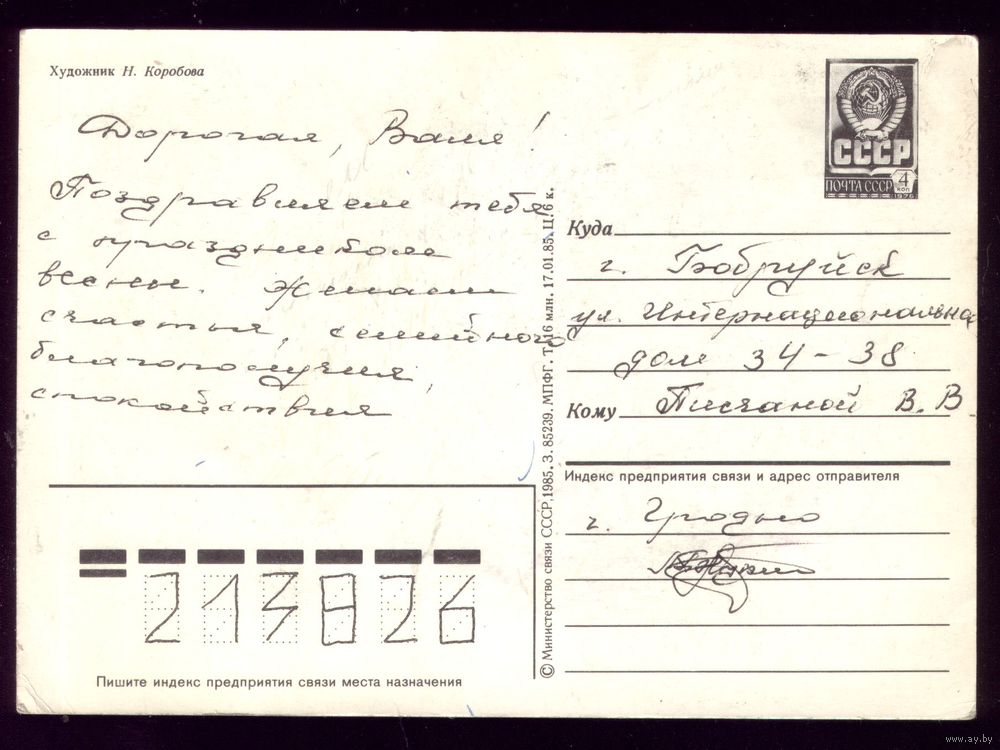 Художник Н. Коробова
Дорогая, Валя!
Поздравляем тебя
с праздником
весны. Желаем
счастья, семейного
благополучия,
спокойствия
СССР
ПОЧТА СССР 4 КОП
1976
Куда
г. Бобруйск
ул. Интернациональная
дом 34-38
Кому Писчаной В. В
Индекс предприятия связи и адрес отправителя
г. Гродно
213826
Пишите индекс предприятия связи места назначения
© Министерство связи СССР, 1985. З. 85239. МПФГ. Т. 16 млн. 17.01.85. Ц. 6 к.
www.ay.by